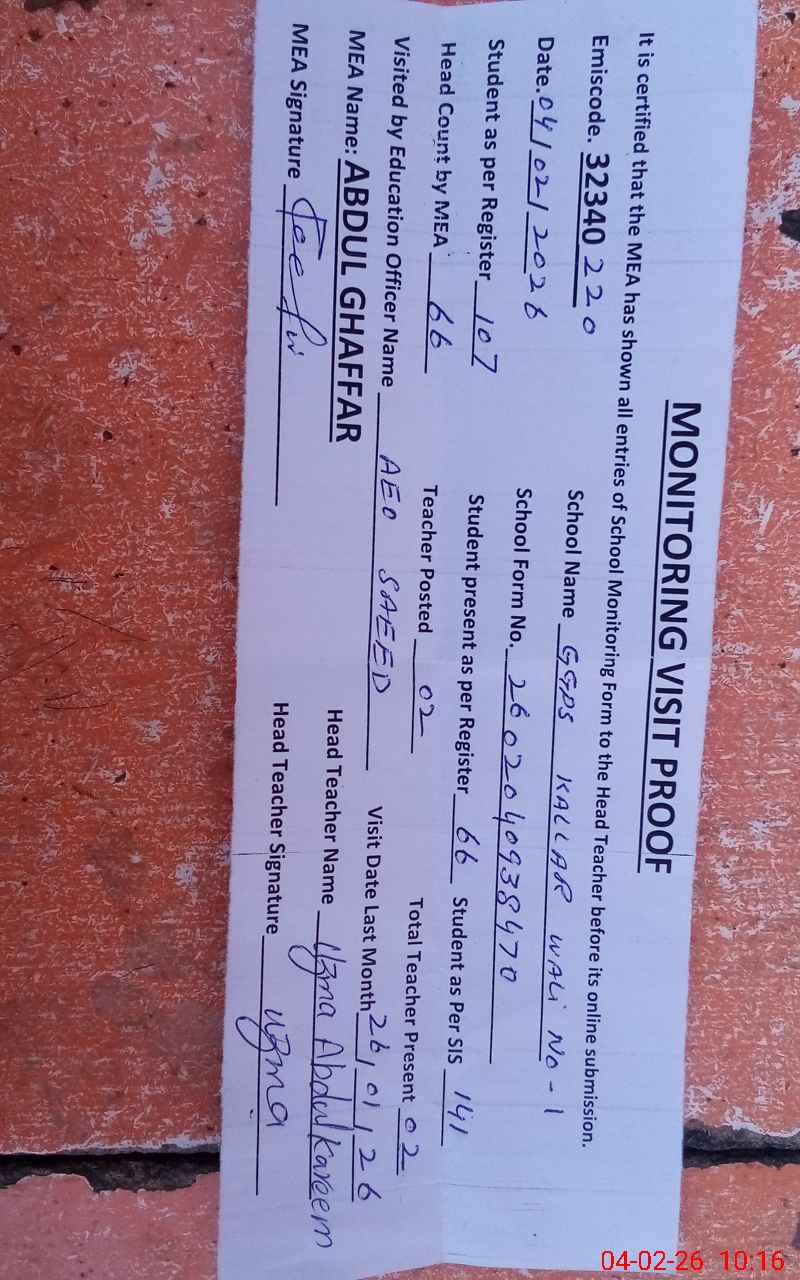 MONITORING VISIT PROOF
It is certified that the MEA has shown all entries of School Monitoring Form to the Head Teacher before its online submission.
Emiscode. 32340220 School Name GGPS KALLAR WALI NO-1
Date. 04/02/2026 School Form No. 2602040938470
Student as per Register 107 Student present as per Register 66 Student as Per SIS 141
Head Count by MEA 66 Teacher Posted 02 Total Teacher Present 02
Visited by Education Officer Name AEO SAEED Visit Date Last Month 26/01/26
MEA Name: ABDUL GHAFFAR Head Teacher Name Uzma Abdul Kareem
MEA Signature Head Teacher Signature Uzma
04-02-26 10:16